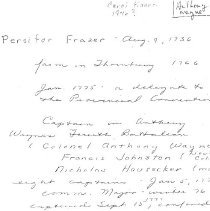 Anthony
Wayne
Persifor Frazer - Aug. 9, 1736
from in Thornbury 1766
Jan 1775 - a delegate to
the Provincial Convention
Captain in Anthony
Wayne's Fourth Battalion
(Colonel Anthony Wayne
Francis Johnston
Nicholas Hausecker
eight captains Jan 5,
comm. Major
captured Sept 15,